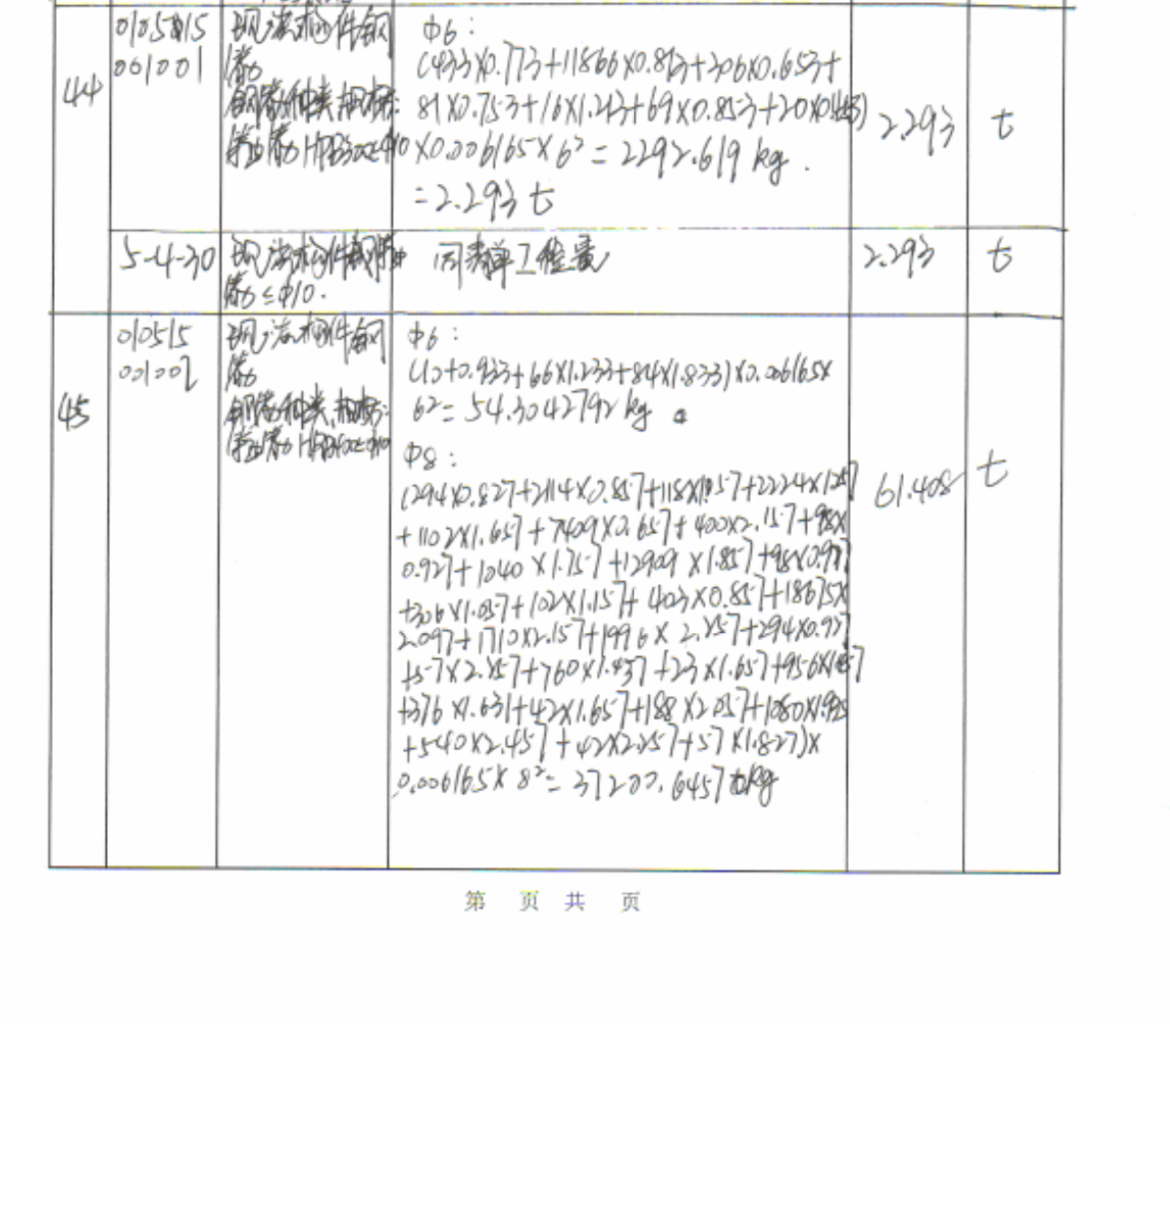 44
010515
001001
现浇构件钢
筋
钢筋种类、规格:
箍筋HPB300≤Φ10
Φ6:
(433×0.773+11866×0.813+306×0.653+
81×0.753+16×1.213+69×0.853+20×0.)
×0.006165×6²=2292.619 kg.
=2.293 t
2.293
t
5-4-30
现浇构件钢筋
筋≤Φ10.
同清单工程量
2.293
t
45
010515
001002
现浇构件钢
筋
钢筋种类、规格:
箍筋HRB400≤Φ10
Φ6:
(10+0.933+66×1.233+84×1.833)×0.006165×
6²=54.3042792 kg
Φ8:
(294×0.827+2114×0.857+118××1.257
+1102×1.657+7409×0.657+400×2.157+98×
0.927+1040×1.757+12909×1.857+98×0.977
+306×1.057+102×1.157+403×0.857+18675×
2.097+1710×2.157+1996×2.257+294×0.927
+57×2.257+760×1.457+23×1.657+956×
+376×1.631+42×1.657+188×2.057+1080×
+540×2.457+42×2.257+57×1.827)×
0.006165×8²=37200.6457 kg
61.408
t
第 页 共 页